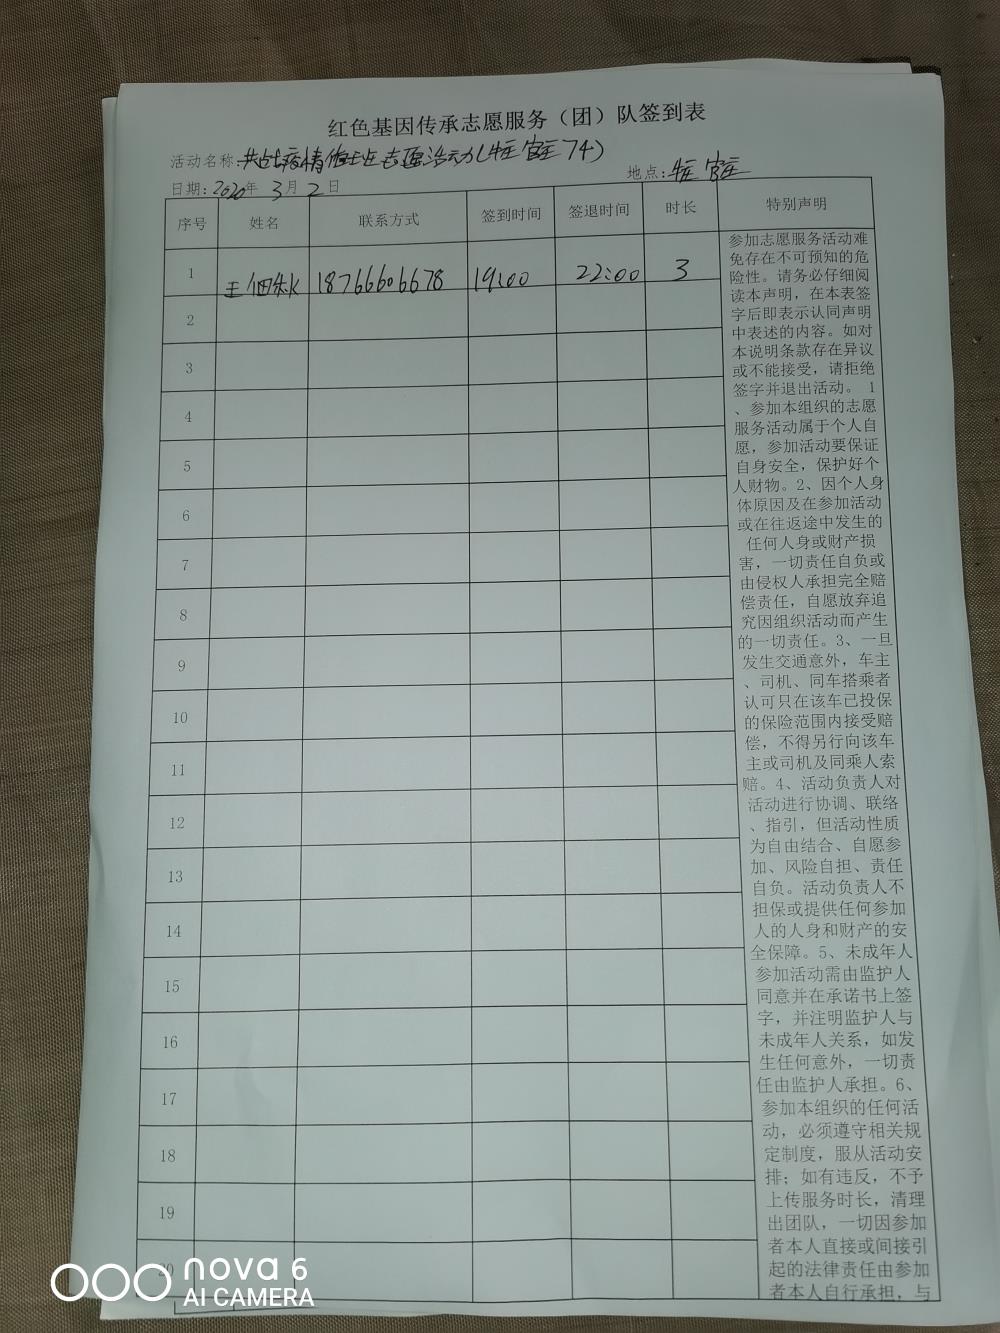 红色基因传承志愿服务（团）队签到表
活动名称：共战疫情 志愿活动(
日期：2020年 3月 2日 地点：
序号 姓名 联系方式 签到时间 签退时间 时长 特别声明
1 王 18766606678 19:00 22:00 3
2
3
4
5
6
7
8
9
10
11
12
13
14
15
16
17
18
19
20
参加志愿服务活动难
免存在不可预知的危
险性。请务必仔细阅
读本声明，在本表签
字后即表示认同声明
中表述的内容。如对
本说明条款存在异议
或不能接受，请拒绝
签字并退出活动。 1
、参加本组织的志愿
服务活动属于个人自
愿，参加活动要保证
自身安全，保护好个
人财物。2、因个人身
体原因及在参加活动
或在往返途中发生的
任何人身或财产损
害，一切责任自负或
由侵权人承担完全赔
偿责任，自愿放弃追
究因组织活动而产生
的一切责任。3、一旦
发生交通意外，车主
、司机、同车搭乘者
认可只在该车已投保
的保险范围内接受赔
偿，不得另行向该车
主或司机及同乘人索
赔。4、活动负责人对
活动进行协调、联络
、指引，但活动性质
为自由结合、自愿参
加、风险自担、责任
自负。活动负责人不
担保或提供任何参加
人的人身和财产的安
全保障。5、未成年人
参加活动需由监护人
同意并在承诺书上签
字，并注明监护人与
未成年人关系，如发
生任何意外，一切责
任由监护人承担。6、
参加本组织的任何活
动，必须遵守相关规
定制度，服从活动安
排；如有违反，不予
上传服务时长，清理
出团队，一切因参加
者本人直接或间接引
起的法律责任由参加
者本人自行承担，与
nova 6
AI CAMERA